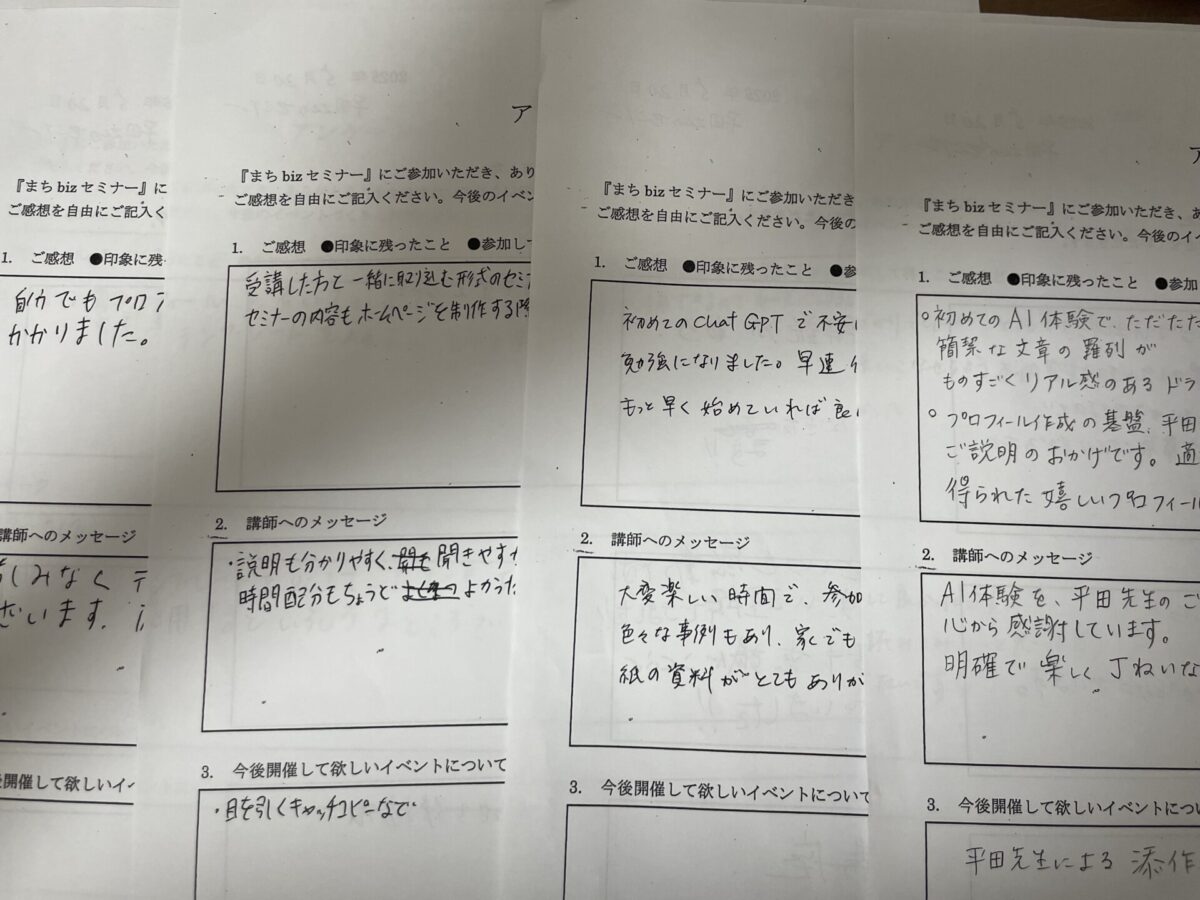 『まちbizセミナー』に
ご感想を自由にご記入く
1. ご感想 ●印象に残っ
自分でもプロフ
かかりました。
講師へのメッセージ
しみなく
ざいます。
開催して欲しいイベ
ア
『まちbizセミナー』にご参加いただき、あり
ご感想を自由にご記入ください。今後のイベン
1. ご感想 ●印象に残ったこと ●参加して
受講した方と一緒に取り込む形式のセミ
セミナーの内容もホームページを制作する際
2. 講師へのメッセージ
・説明も分かりやすく、聞きやすか
時間配分もちょうどよかった
3. 今後開催して欲しいイベントについて
・目を引くキャッチコピーなど
『まちbizセミナー』にご参加いただき
ご感想を自由にご記入ください。今後の
1. ご感想 ●印象に残ったこと ●参
初めてのChat GPTで不安
勉強になりました。早速
もっと早く始めていれば良
2. 講師へのメッセージ
大変楽しい時間で、参加
色々な事例もあり、家でも
紙の資料がとてもありが
3. 今後開催して欲しいイベントについて
ア
『まちbizセミナー』にご参加いただき、あ
ご感想を自由にご記入ください。今後のイ
1. ご感想 ●印象に残ったこと ●参加
○初めてのAI体験で、ただただ
簡潔な文章の羅列が
ものすごくリアル感のあるドラ
○プロフィール作成の基盤、平田
ご説明のおかげです。適
得られた嬉しいプロフィール
2. 講師へのメッセージ
AI体験を、平田先生のご
心から感謝しています。
明確で楽しく丁ねいな
3. 今後開催して欲しいイベントについ
平田先生による添作